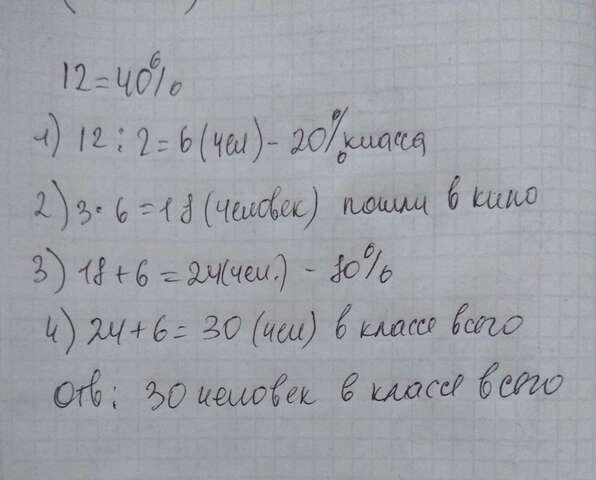 12=40%
1) 12:2=6(чел)-20% класса
2) 3·6=18(человек) пошли в кино
3) 18+6=24(чел.)-80%
4) 24+6=30(чел) в классе всего
Отв: 30 человек в классе всего